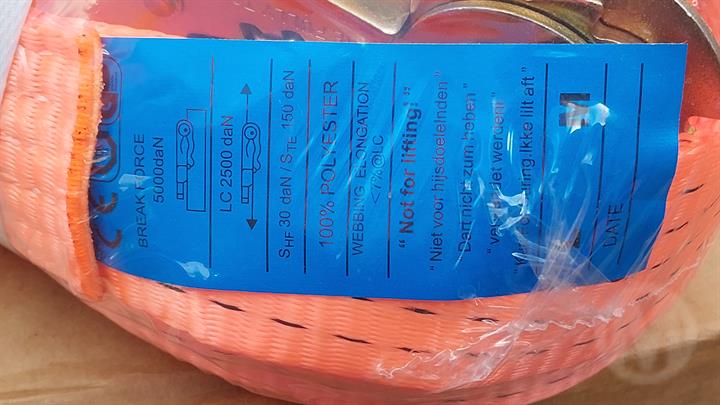 CE
BREAK FORCE
5000daN
LC 2500 daN
SHF 30 daN / STE 150 daN
100% POLYESTER
WEBBING ELONGATION
<7%@LC
“ Not for lifting! ”
“ Niet voor hijsdoeleinden ”
“ Darf nicht zum heben
werden! ”
Ikke lilt aft ”
DATE